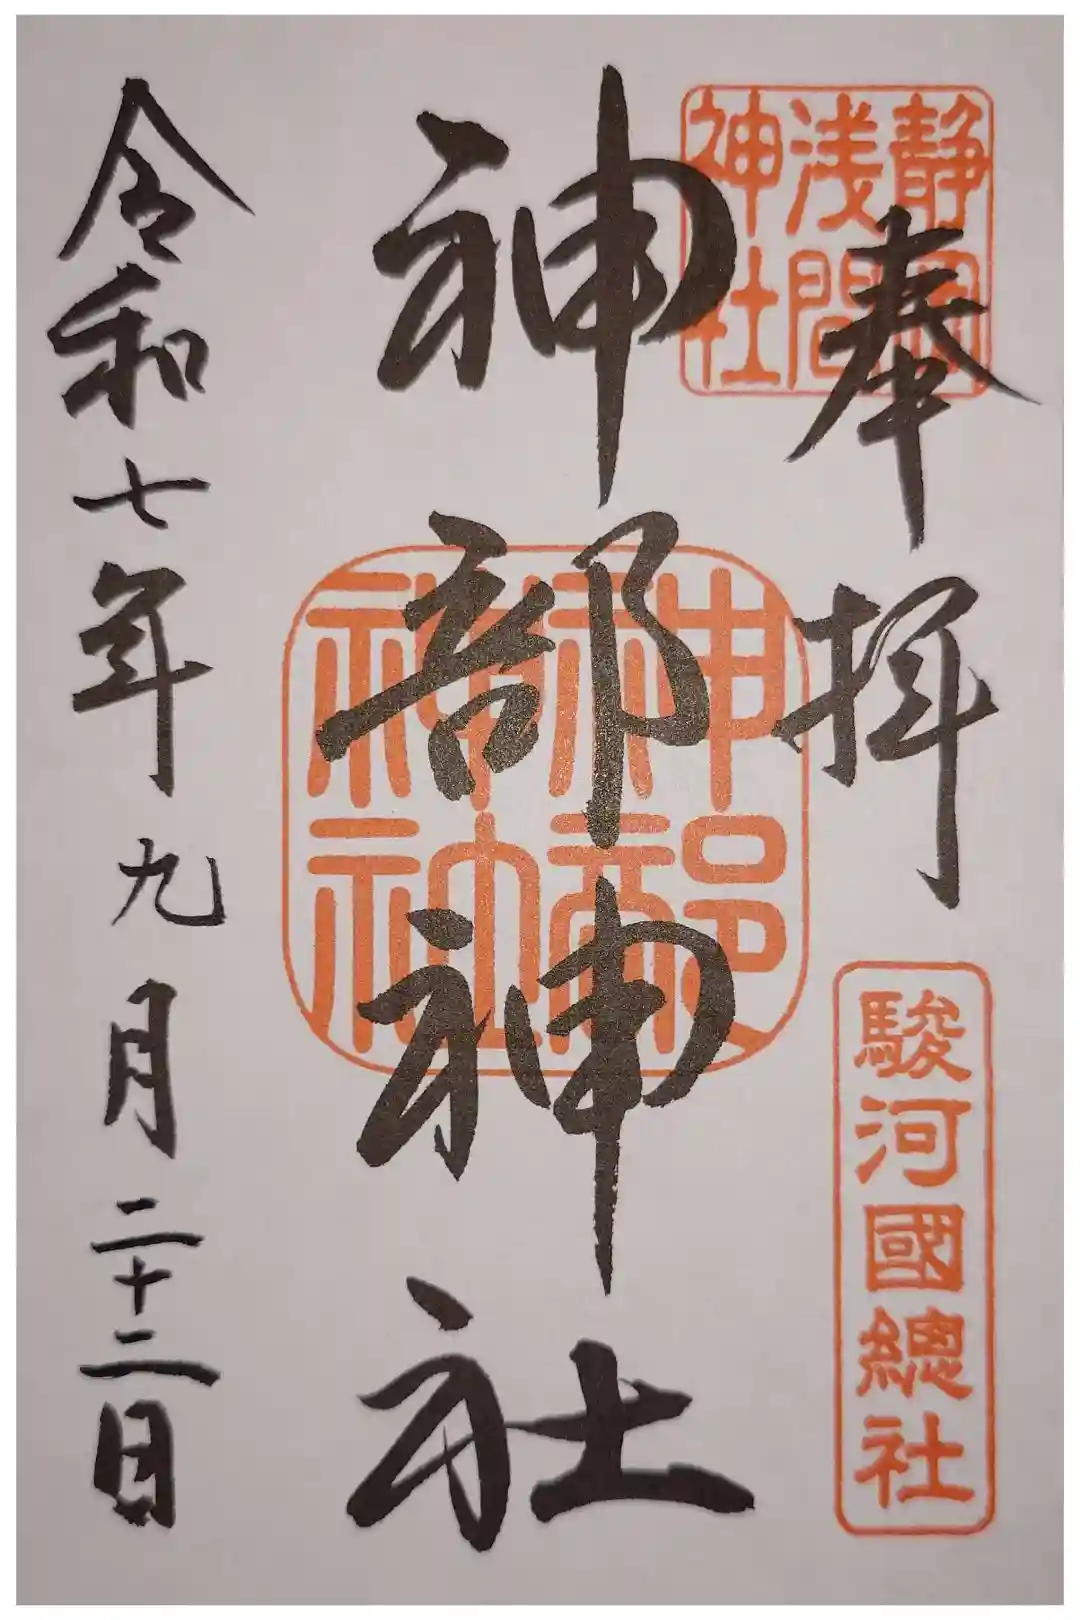 奉拝
静岡
浅間
神社
駿河國總社
神部神社
神部
神社
令和七年九月二十二日